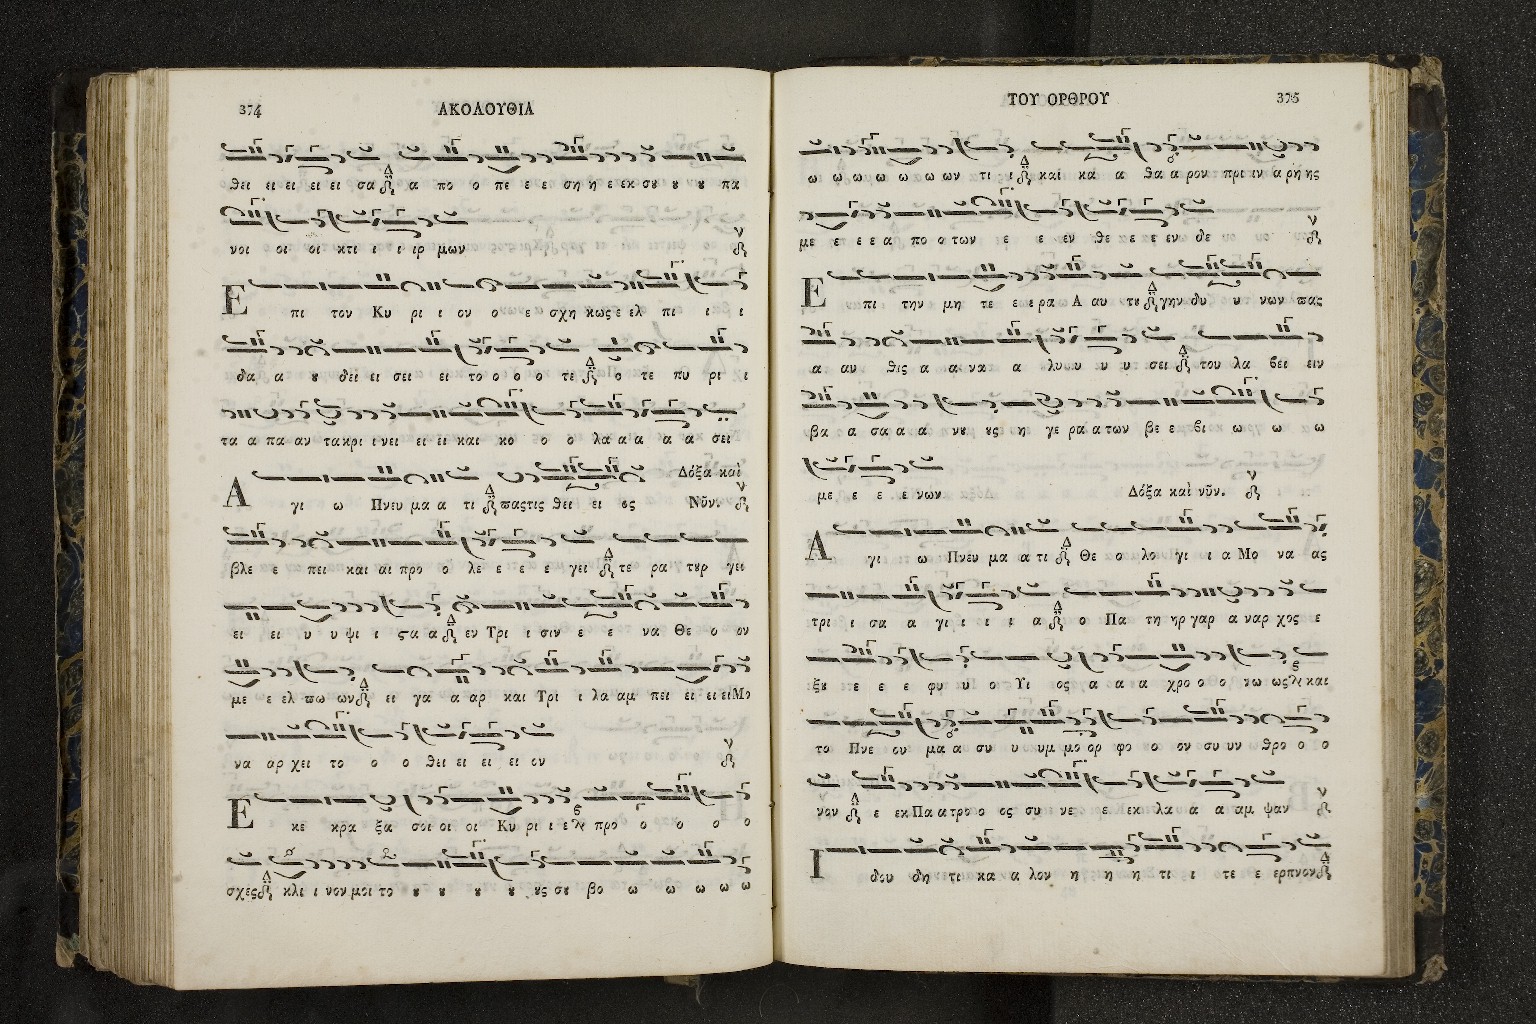 374
ΑΚΟΛΟΥΘΙΑ
θει ει ει ει ει ει σα α πο ο πε ε ε ση η ε εκ σου ου ου πα
νοι οι οι κτι ι ι ιρ μων
Ε πι τον Κυ ρι ι ον ο ε σχη κως ε ελ πι ι ι
δα α ου δει ει σει ει το ο ο ο τε ο τε πυ ρι ι
τα α πα αν τα κρι ι νει ει ει και κο ο ο λα α α α α σει
Δόξα καὶ
Α γι ω Πνευ μα α τι πας τις θει ει ος Νῦν.
βλε ε πει και αι προ ο λε ε ε ε γει τε ρα τουρ γει
ει ει υ υ ψι ι στα α εν Τρι ι σιν ε ε να Θε ο ον
με ε ελ πω ων ει γα α αρ και Τρι ι λα αμ πει ει ει ει Μο
να αρ χει το ο ο θει ει ει ει ει ον
Ε κε κρα ξα σοι οι οι Κυ ρι ι ε προ ο ο ο ο
σχες κλι ι νον μοι το ου ου ου ου ους σου βο ω ω ω ω ω
ΤΟΥ ΟΡΘΡΟΥ
375
ω ω ω ω ω ω ων τι ι και κα α θα α ρον πρι ιν α ρη ης
με ε ε ε α πο ο των ε ε εν θε ε ε εν δε
Ε πι την μη τε ε ε ρα Α αυ του γην δυ υ νων πας
α αυ θις α α να α λυ υ υ υ σει του λα βει ειν
βα α σα α α νου ους η γε ρα α των βε ε βι ω ω ω
με ε ε ε νων Δόξα καὶ νῦν.
Α γι ω Πνευ μα α τι Θε ο λο γι ι α Μο να ας
τρι ι σα α γι ι ι ι α ο Πα τη ηρ γαρ α ναρ χος ε
ξου ε ε ε φυ υ ο Υι ος α α α χρο ο ο νω ως και
το Πνε ου μα α συ υ υμ μο ορ φο ο ον συ υν θρο ο ο
νον ε εκ Πα α τρο ο ος συ νε ε εκ λα α α αμ ψαν
Ι δου δη τι κα α λον η η η τι ι τε ε ερπνον